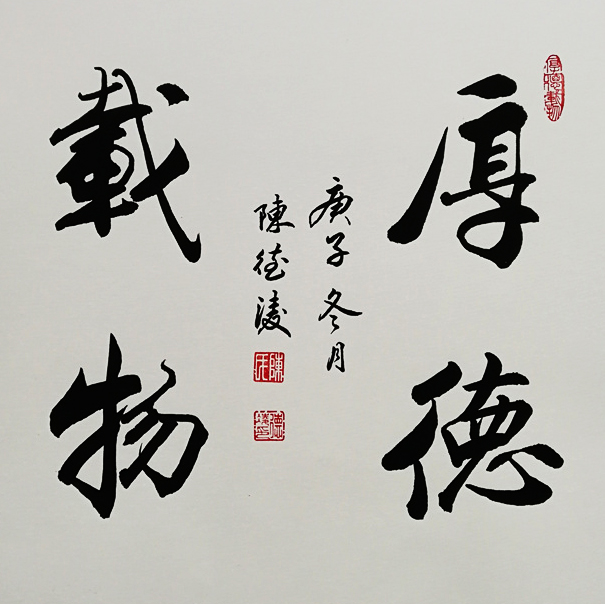 厚德
載物
庚子冬月
陳德凌